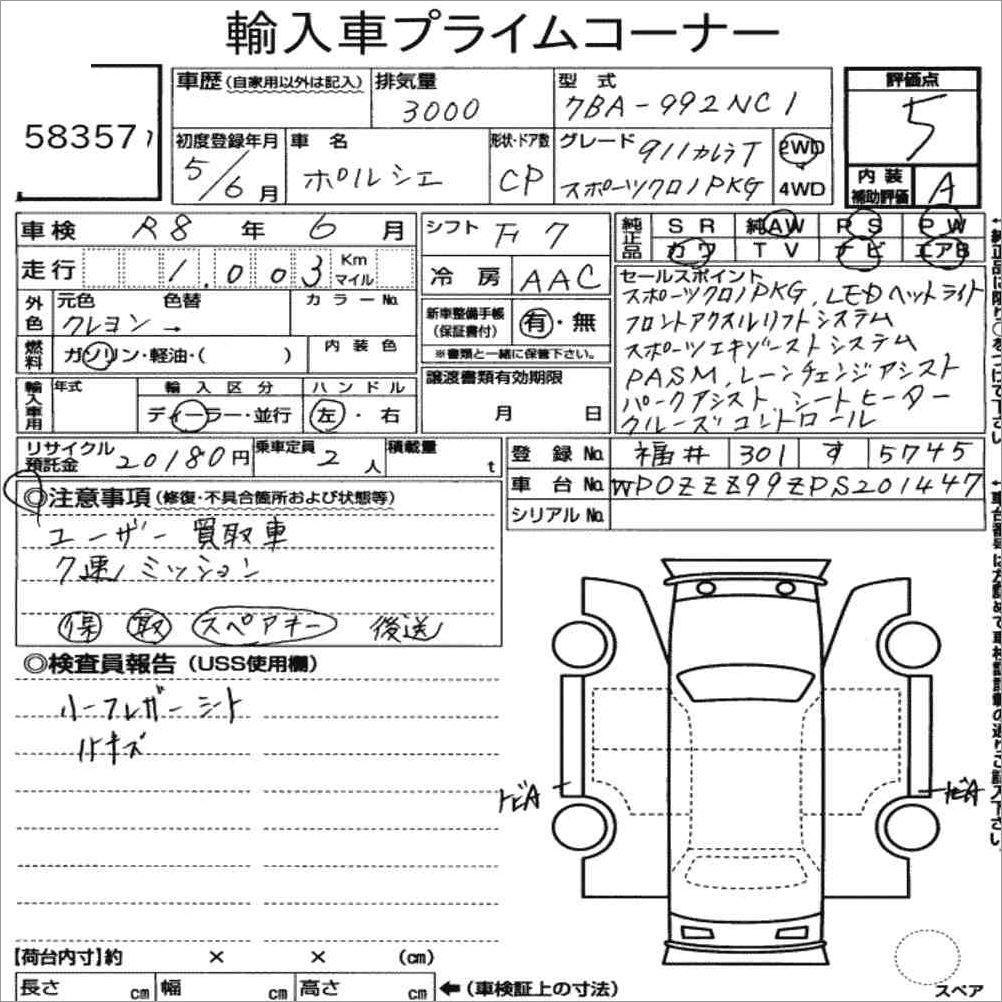 輸入車プライムコーナー
58357
車歴(自家用以外は記入)
排気量
3000
型式
7BA-992NC1
評価点
5
初度登録年月
5/6月
車名
ポルシェ
形状・ドア数
CP
グレード
911カレラT
スポーツクロノPKG
2WD
4WD
内装
補助評価
A
車検 R8年6月
シフト F7
純正品
SR 純AW PS PW
カワ TV ナビ エアB
走行 1.003 Km
マイル
冷房 AAC
セールスポイント
スポーツクロノPKG、LEDヘットライト
フロントアクスルリフトシステム
スポーツエキゾーストシステム
PASM、レーンチェンジアシスト
パークアシスト、シートヒーター
クルーズコントロール
外色
元色 色替
クレヨン→
カラーNo.
新車整備手帳
(保証書付)
有・無
※書類と一緒に保管下さい。
燃料
ガソリン・軽油・( )
内装色
譲渡書類有効期限
月 日
輸入車用
年式
輸入区分
ディーラー・並行
ハンドル
左・右
リサイクル
預託金
20180円
乗車定員
2人
積載量
t
登録No. 福井 301 す 5745
車台No. WP0ZZZ99ZPS201447
シリアルNo.
◎注意事項(修復・不具合箇所および状態等)
ユーザー買取車
7速ミッション
保 取 スペアキー 後送
◎検査員報告(USS使用欄)
ハーフレザーシート
小キズ
トビA
トビA
【荷台内寸】約 × × (cm)
長さ cm 幅 cm 高さ cm
←(車検証上の寸法)
スペア